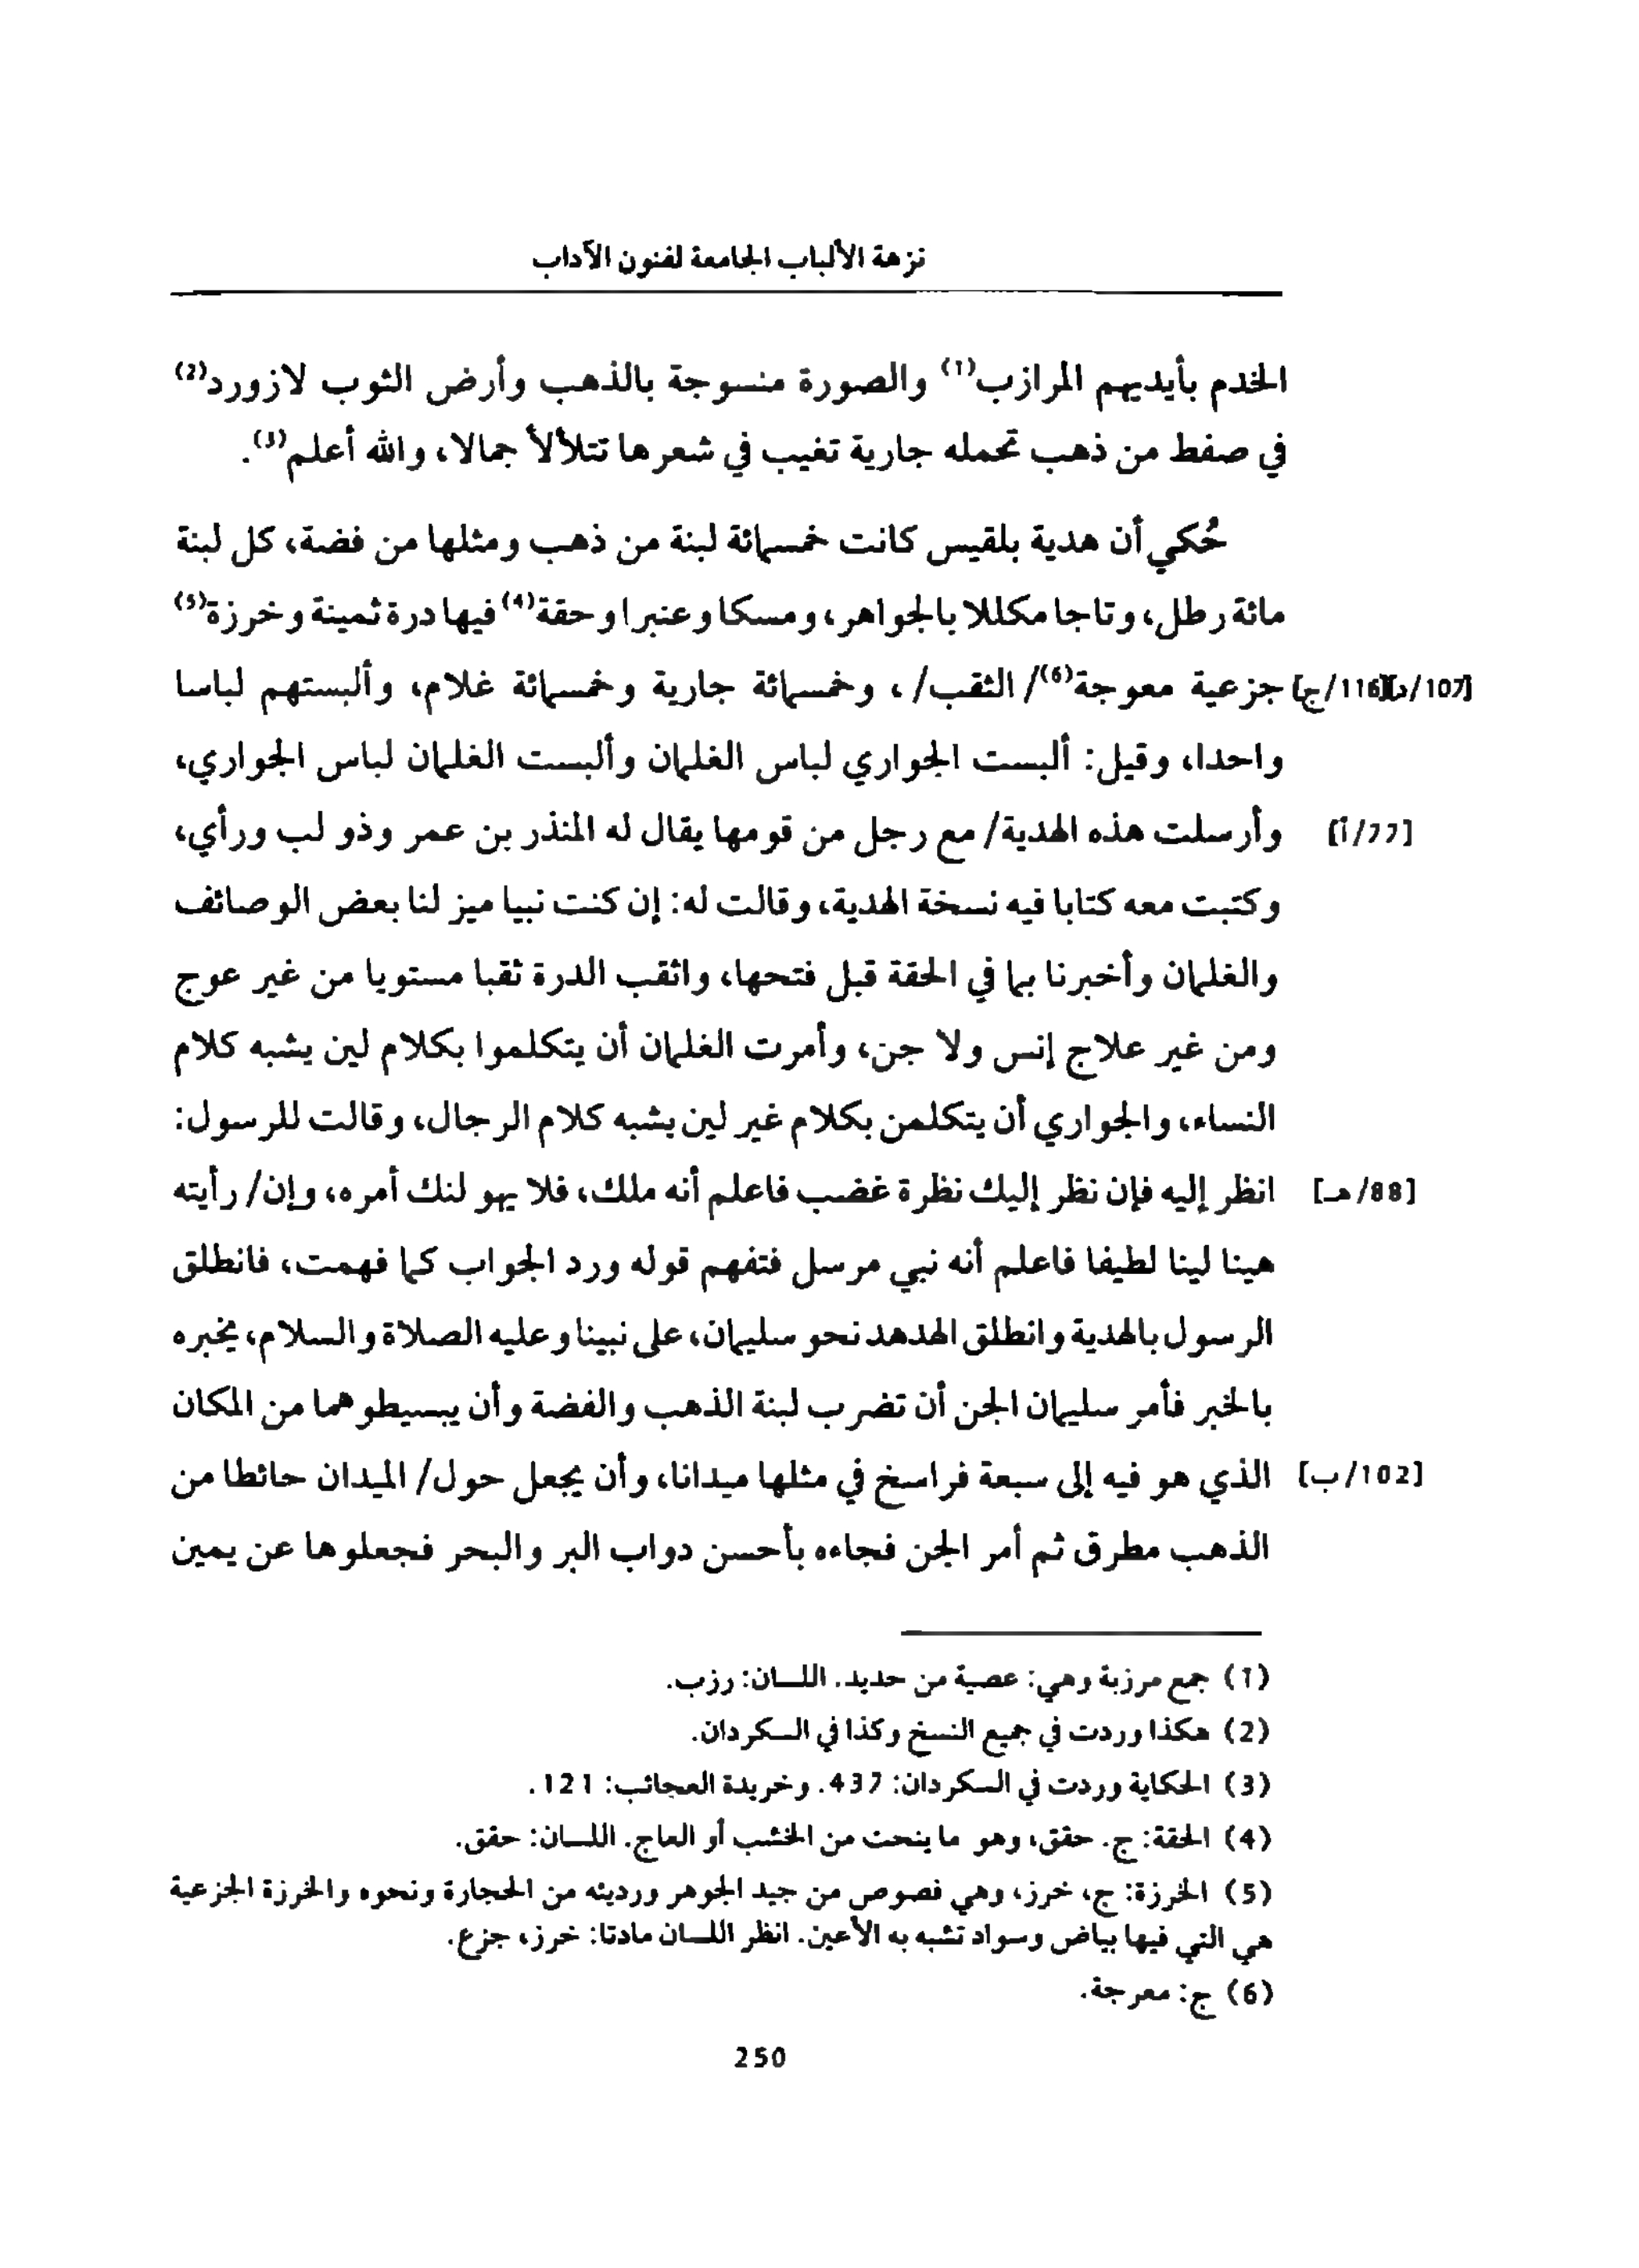 نزهة الألباب الجامعة لفنون الآداب
الخدم بأيديهم المرازب(1) والصورة منسوجة بالذهب وأرض الثوب لازورد(2)
في صفط من ذهب تحمله جارية تغيب في شعرها تتلألأ جمالا، والله أعلم(3).
حُكي أن هدية بلقيس كانت خمسمائة لبنة من ذهب ومثلها من فضة، كل لبنة
مائة رطل، وتاجا مكللا بالجواهر، ومسكا وعنبرا وحقة(4) فيها درة ثمينة وخرزة(5)
[107/د][116/ج] جزعية معوجة(6)/ الثقب/ ، وخمسمائة جارية وخمسمائة غلام، وألبستهم لباسا
واحدا، وقيل: ألبست الجواري لباس الغلمان وألبست الغلمان لباس الجواري،
[77/أ] وأرسلت هذه الهدية/ مع رجل من قومها يقال له المنذر بن عمر وذو لب ورأي،
وكتبت معه كتابا فيه نسخة الهدية، وقالت له: إن كنت نبيا ميز لنا بعض الوصائف
والغلمان وأخبرنا بما في الحقة قبل فتحها، واثقب الدرة ثقبا مستويا من غير عوج
ومن غير علاج إنس ولا جن، وأمرت الغلمان أن يتكلموا بكلام لين يشبه كلام
النساء، والجواري أن يتكلمن بكلام غير لين يشبه كلام الرجال، وقالت للرسول:
[88/هـ] انظر إليه فإن نظر إليك نظرة غضب فاعلم أنه ملك، فلا يهو لنك أمره، وإن/ رأيته
هينا لينا لطيفا فاعلم أنه نبي مرسل فتفهم قوله ورد الجواب كما فهمت، فانطلق
الرسول بالهدية وانطلق الهدهد نحو سليمان، على نبينا وعليه الصلاة والسلام، يخبره
بالخبر فأمر سليمان الجن أن تضرب لبنة الذهب والفضة وأن يبسيطوهما من المكان
[102/ب] الذي هو فيه إلى سبعة فراسخ في مثلها ميدانا، وأن يجعل حول/ الميدان حائطا من
الذهب مطرق ثم أمر الجن فجاءه بأحسن دواب البر والبحر فجعلوها عن يمين
(1) جمع مرزبة وهي: عصية من حديد. اللسان: رزب.
(2) هكذا وردت في جميع النسخ وكذا في السكردان.
(3) الحكاية وردت في السكردان: 437. وخريدة العجائب: 121.
(4) الحقة: ج. حقق، وهو ما ينحت من الخشب أو العاج. اللسان: حقق.
(5) الخرزة: ج، خرز، وهي فصوص من جيد الجوهر ورديئه من الحجارة ونحوه والخرزة الجزعية
هي التي فيها بياض وسواد تشبه به الأعين. انظر اللسان مادتا: خرز، جزع.
(6) ج: معرجة.
250